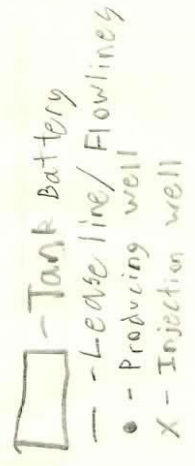 - Tank Battery
- Lease line/Flowlines
- Producing well
X - Injection well